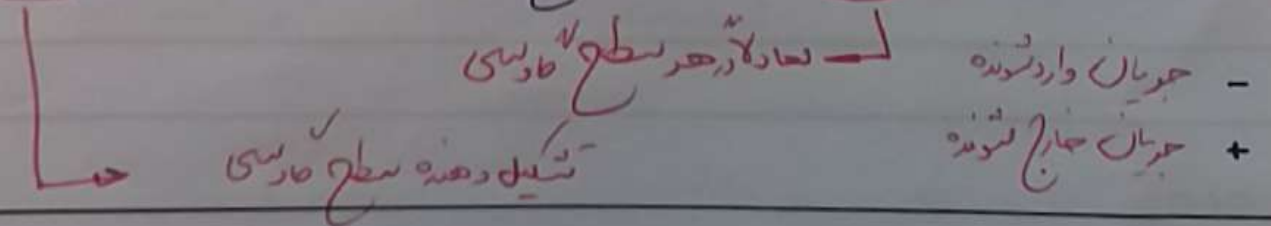 - جریان وارد شونده
معادلاً در هر سطح گاوسی
+ جریان خارج شونده
تشکیل دهنده سطح گاوسی